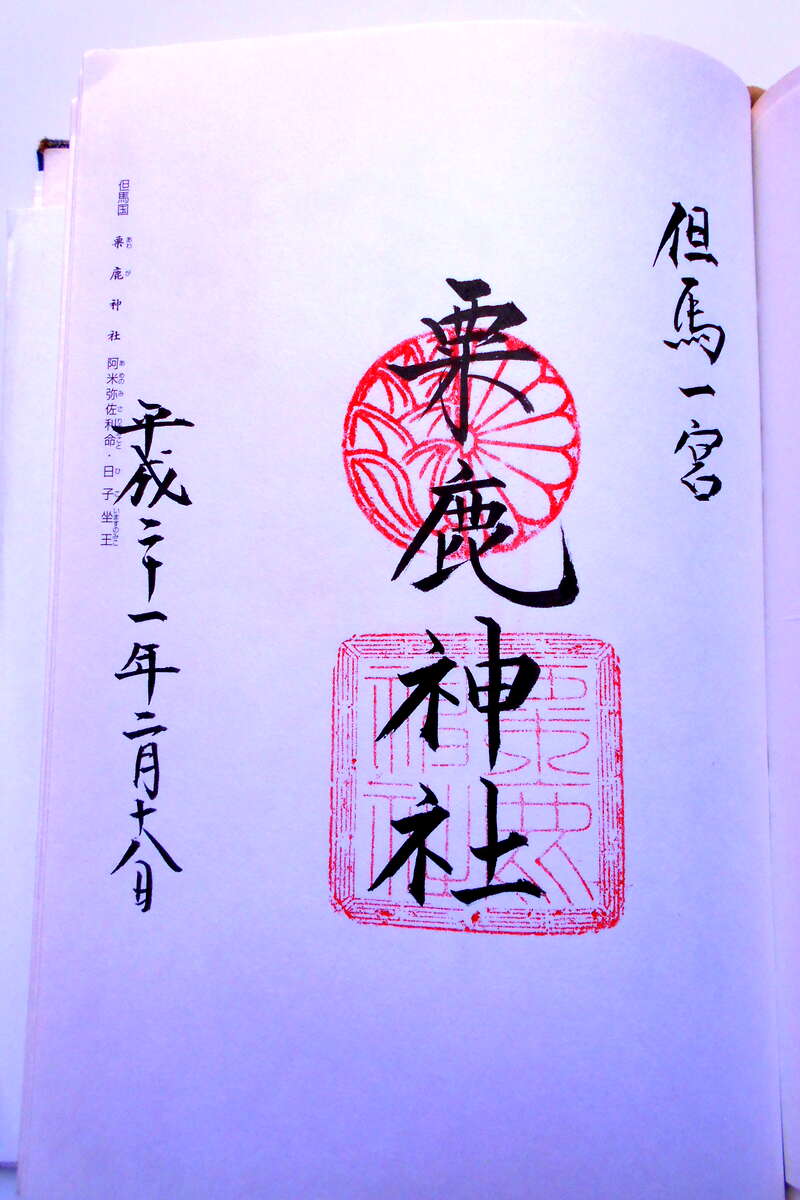 但馬一宮
粟鹿神社
平成二十一年二月十八日
但馬国 粟鹿神社 阿米弥佐利命・日子坐王